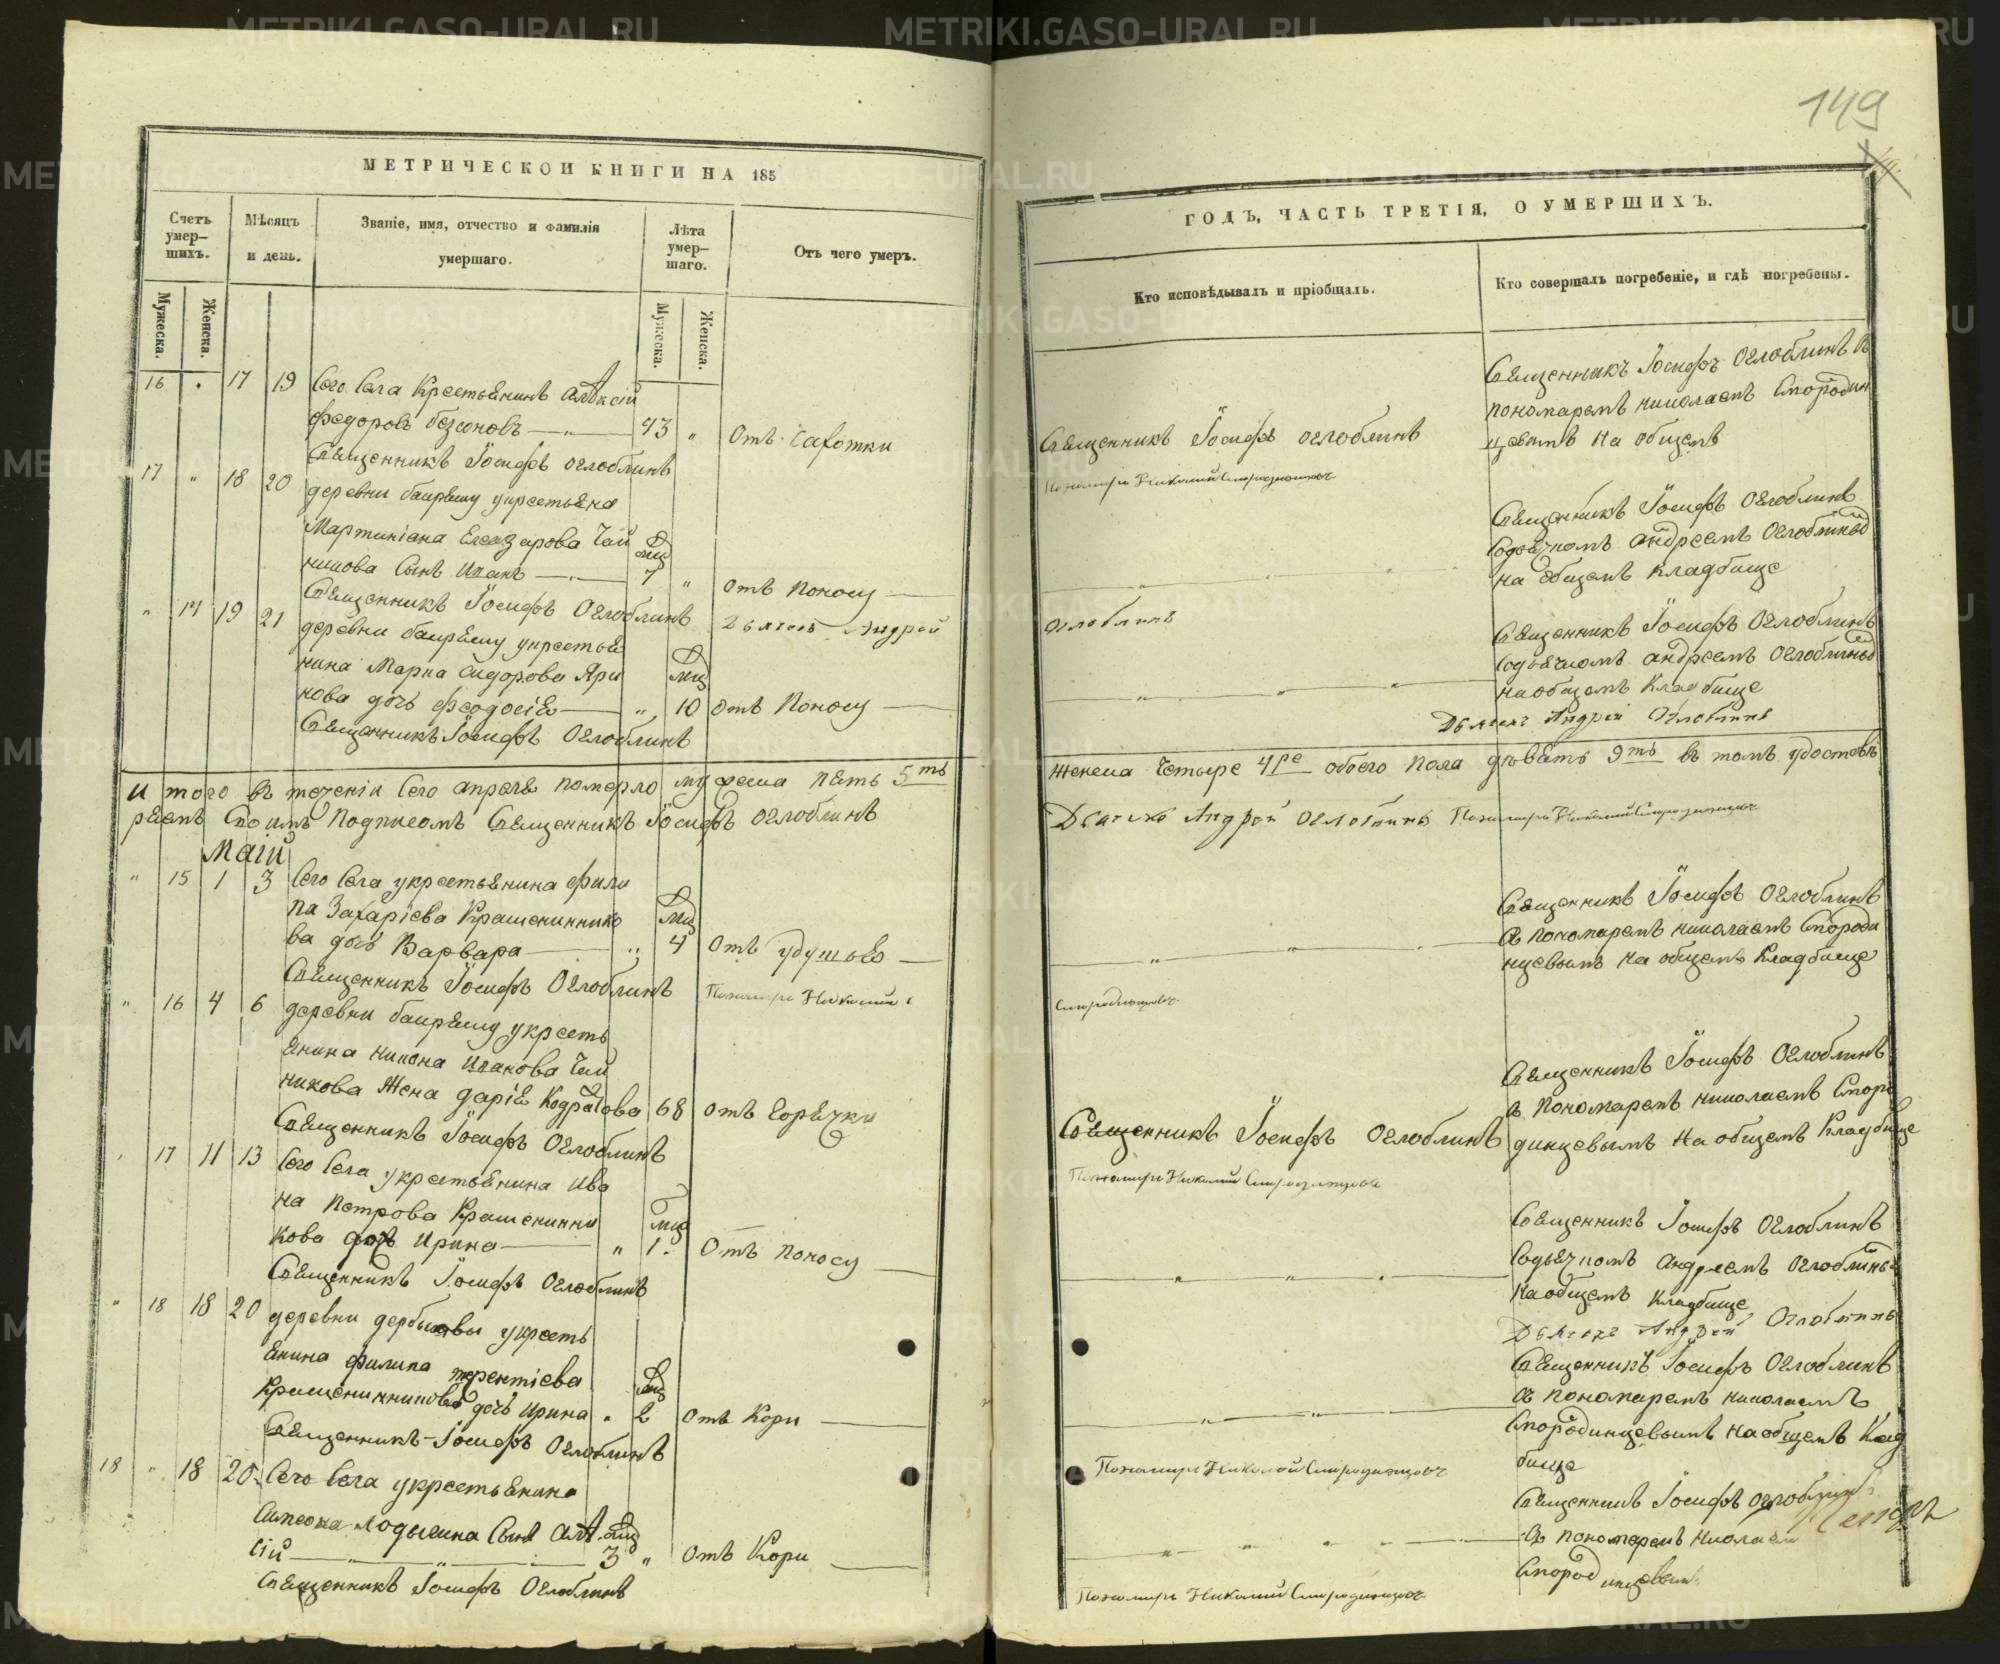 149
МЕТРИЧЕСКОЙ КНИГИ НА 185
Счетъ умер-шихъ.
Мѣсяцъ и день.
Званіе, имя, отчество и фамилія умершаго.
Лѣта умер-шаго.
Отъ чего умеръ.
Мужеска.
Женска.
Мужеска.
Женска.
16 17 19 Сего Села Крестьянинъ Алѣксій
Федоровъ безсоновъ 43 " Отъ Чахотки
Священникъ Іосифъ Оглоблинъ
17 " 18 20 деревни укрестьяна
Мартиніана Елеазарова Чай
никова Сынъ Иванъ 7 " отъ Поносу
Священникъ Іосифъ Оглоблинъ
" 14 19 21 деревни укрестья
нина Марка Сидорова Яри
нова дочь Феодосія " 10 отъ Поносу
Дьячекъ Андрей
Священникъ Іосифъ Оглоблинъ
и того въ теченіи Сего апреля померло мужеска пять 5ть
Своимъ Подписомъ Священникъ Іосифъ Оглоблинъ
Маій
" 15 1 3 Сего Села укрестьянина фили
па Захаріева Крашениннико
ва дочь Варвара " 4 отъ удушья
Священникъ Іосифъ Оглоблинъ
Пономарь Николай
" 16 4 6 деревни укресть
янина Никона Иванова Чай
никова Жена дарія Кодратова 68 отъ горячки
Священникъ Іосифъ Оглоблинъ
17 11 13 Сего Села укрестьянина Ива
на Петрова Крашенинни
кова дочь Ирина " 1. Отъ поносу
Священникъ Іосифъ Оглоблинъ
" 18 18 20 деревни укресть
янина филипа терентіева
Крашенинникова дочь Ирина 2 отъ Кори
Священникъ Іосифъ Оглоблинъ
18 " 18 20 Сего Села укрестьянина
Симеона Лодыгина Сынъ Алѣк
сій 3 " отъ Кори
Священникъ Іосифъ Оглоблинъ
ГОДЪ, ЧАСТЬ ТРЕТІЯ, О УМЕРШИХЪ.
Кто исповѣдывалъ и пріобщалъ.
Кто совершалъ погребеніе, и гдѣ погребены.
Священникъ Іосифъ Оглоблинъ
Пономарь Николай Смородинцовъ
Священникъ Іосифъ Оглоблинъ съ
пономаремъ николаемъ Смородин
цевымъ на общемъ
Священникъ Іосифъ Оглоблинъ
Содьячкомъ андреемъ Оглоблинымъ
на общемъ кладбище
Оглоблинъ
Священникъ Іосифъ Оглоблинъ
Содьячкомъ андреемъ Оглоблинымъ
наобщемъ Кладбище
Дьячекъ Андрей Оглоблинъ
женска Четыре 4ре обоего пола девять 9ть въ томъ удостовѣ
Дьячекъ Андрей Оглоблинъ Пономарь Николай Смородинцовъ
Священникъ Іосифъ Оглоблинъ
съ пономаремъ николаемъ Смороди
нцевымъ на общемъ Кладбище
Смородинцовъ
Священникъ Іосифъ Оглоблинъ
съ Пономаремъ николаемъ Сморо
динцевымъ на общемъ Кладбище
Священникъ Іосифъ Оглоблинъ
Пономарь Николай Смородинцовъ
Священникъ Іосифъ Оглоблинъ
Содьячкомъ Андреемъ Оглоблинымъ
Наобщемъ Кладбище
Дьячекъ Андрей Оглоблинъ
Священникъ Іосифъ Оглоблинъ
съ пономаремъ николаемъ
Смородинцевымъ наобщемъ Клад
бище
Пономарь Николай Смородинцовъ
Священникъ Іосифъ Оглоблинъ
съ пономаремъ
Смородинцевымъ
Пономарь Николай Смородинцовъ
METRIKI.GASO-URAL.RU